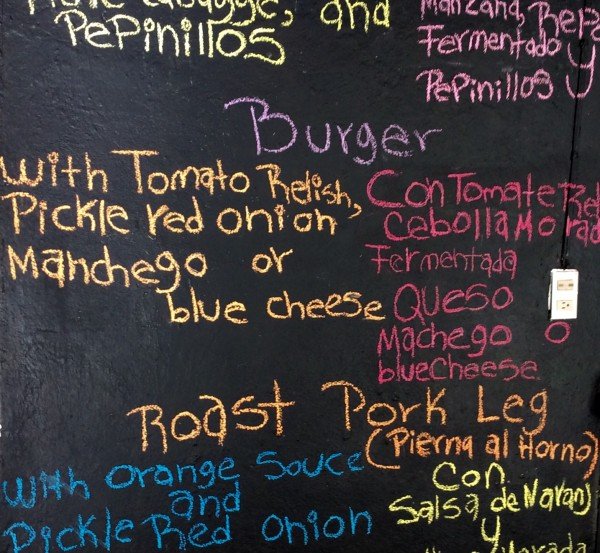 and
PePinillos
Manzana, Rep
Fermentado y
PePinillos
Burger
with Tomato Relish,
Pickle red onion
Manchego or
blue cheese
Con Tomate Rel
Cebolla Morad
Fermentada
Queso
Machego o
bluecheese
Roast Pork Leg
(Pierna al Horno)
with orange Souce
and
Pickle Red onion
Con
Salsa de Naranj
y